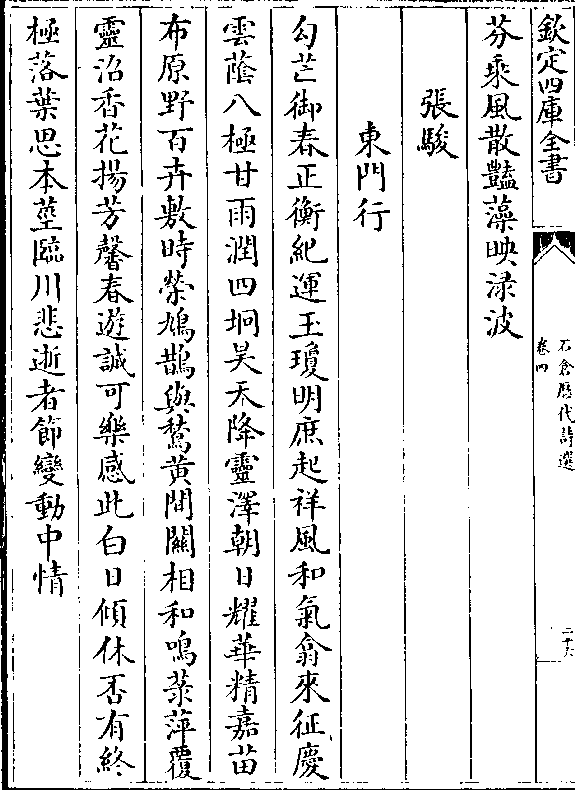 欽定四庫全書
石倉歴代詩選
卷四
二十六
芬乘風散豔藻映渌波
張駿
東門行
勾芒御春正衡紀運玉瓊明庶起祥風和氣翕來征慶
雲蔭八極甘雨潤四坰昊天降靈澤朝日耀華精嘉苗
布原野百卉敷時榮鳩鵲與鶖黄間關相和鳴菉萍覆
靈沼香花揚芳馨春遊誠可樂感此白日傾休否有終
極落葉思本莖臨川悲逝者節變動中情